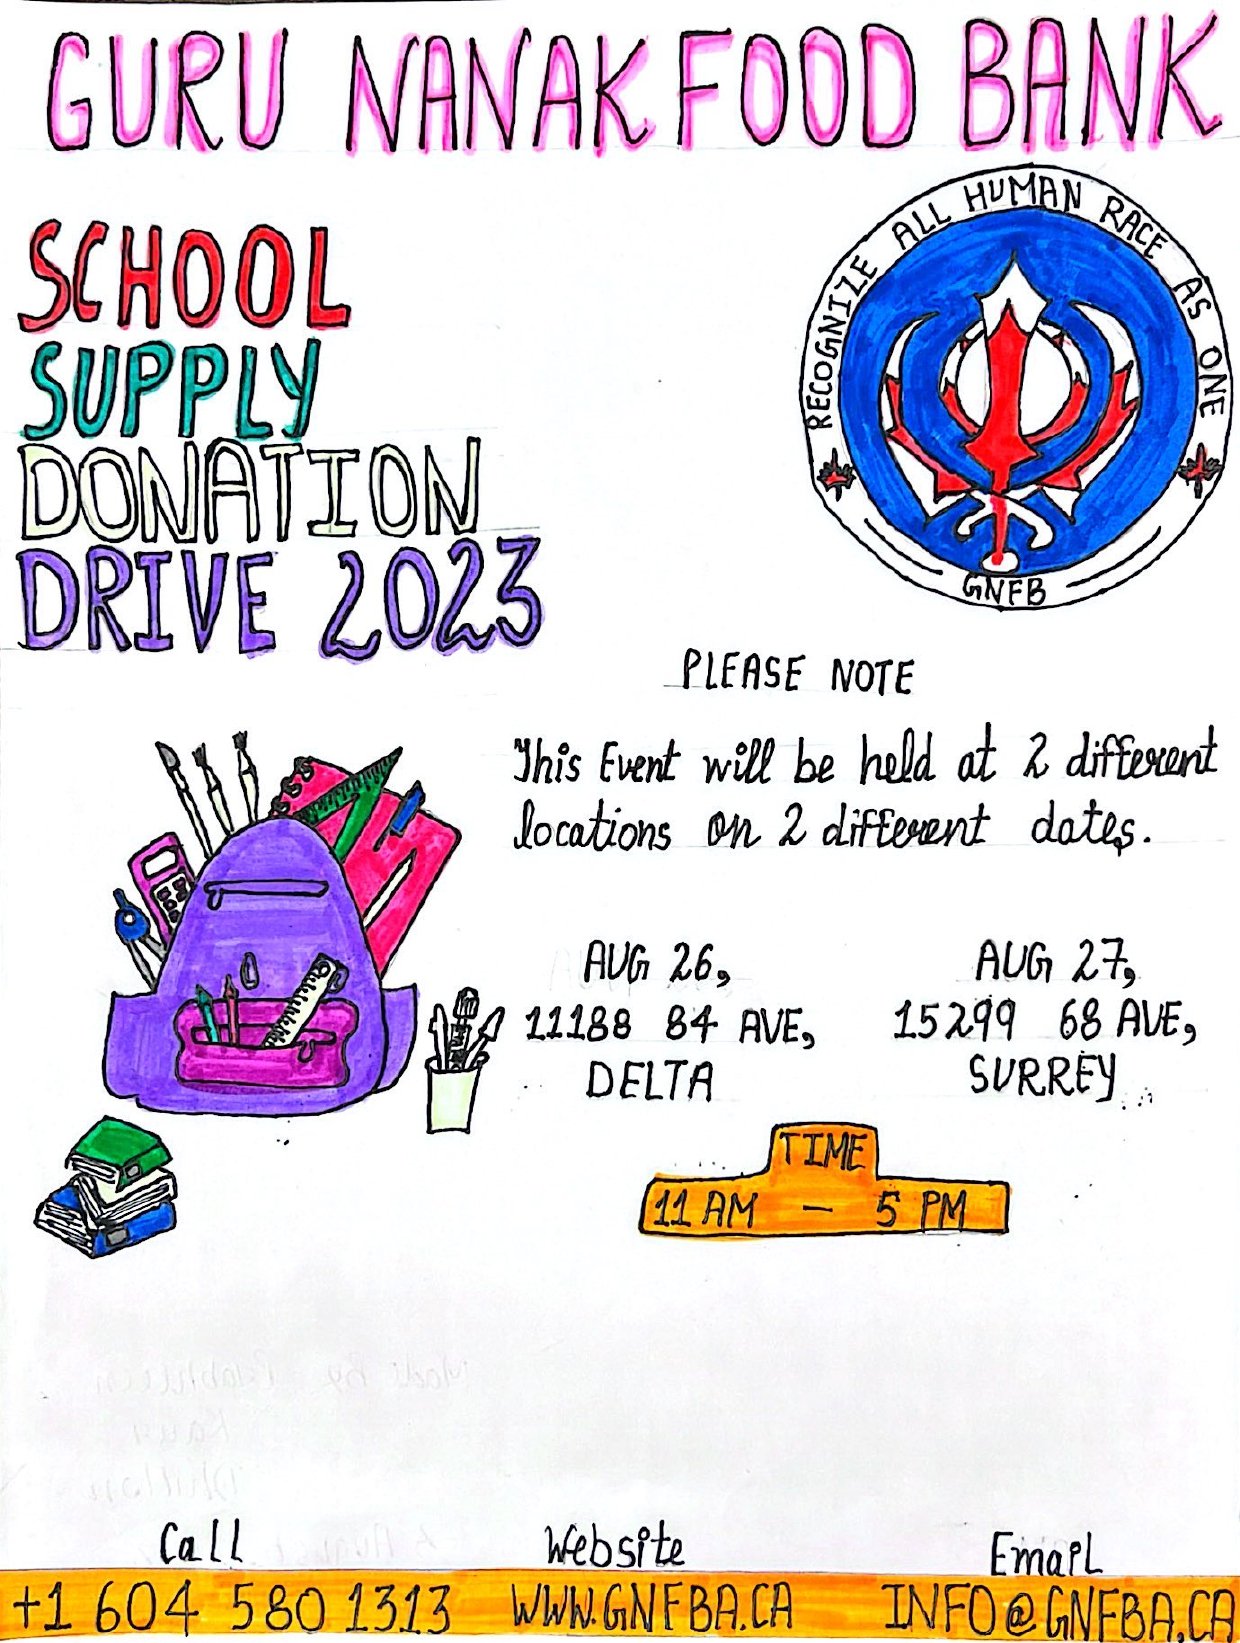 GURU NANAK FOOD BANK
SCHOOL
SUPPLY
DONATION
DRIVE 2023
RECOGNIZE ALL HUMAN RACE AS ONE
GNFB
PLEASE NOTE
This Event will be held at 2 different
locations on 2 different dates.
AUG 26,
11188 84 AVE,
DELTA
AUG 27,
15299 68 AVE,
SURREY
TIME
11 AM – 5 PM
Call
+1 604 580 1313
Website
WWW.GNFBA.CA
Email
INFO@GNFBA.CA